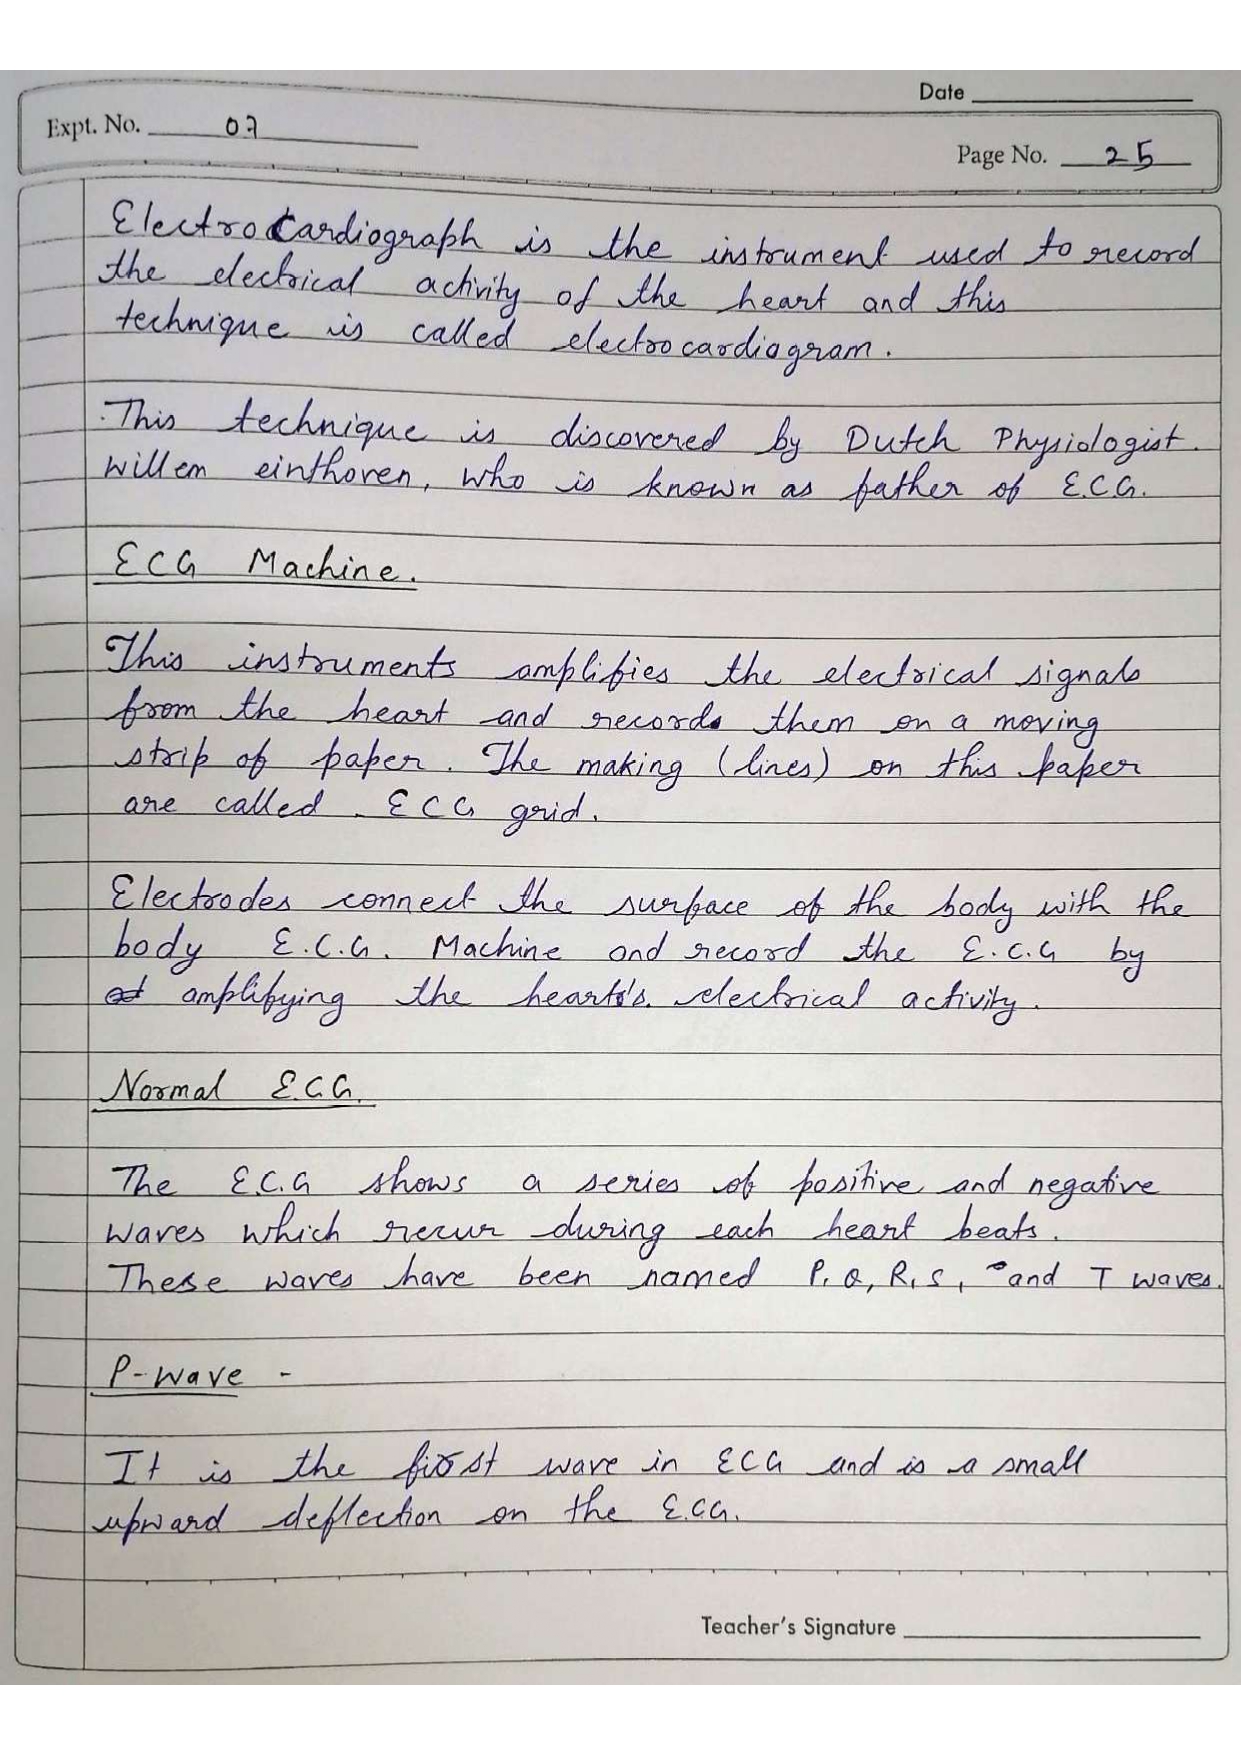 Date
Expt. No. 07
Page No. 25
Electrocardiograph is the instrument used to record
the electrical activity of the heart and this
technique is called electrocardiogram.
This technique is discovered by Dutch Physiologist.
Willem einthoven, who is known as father of E.C.G.
ECG Machine.
This instruments amplifies the electrical signals
from the heart and records them on a moving
strip of paper. The making (lines) on this paper
are called ECG grid.
Electrodes connect the surface of the body with the
body E.C.G. Machine and record the E.C.G by
amplifying the heart's electrical activity.
Normal E.C.G.
The E.C.G shows a series of positive and negative
waves which recur during each heart beats.
These waves have been named P, Q, R, S, and T waves.
P-wave -
It is the first wave in ECG and is a small
upward deflection on the E.C.G.
Teacher's Signature